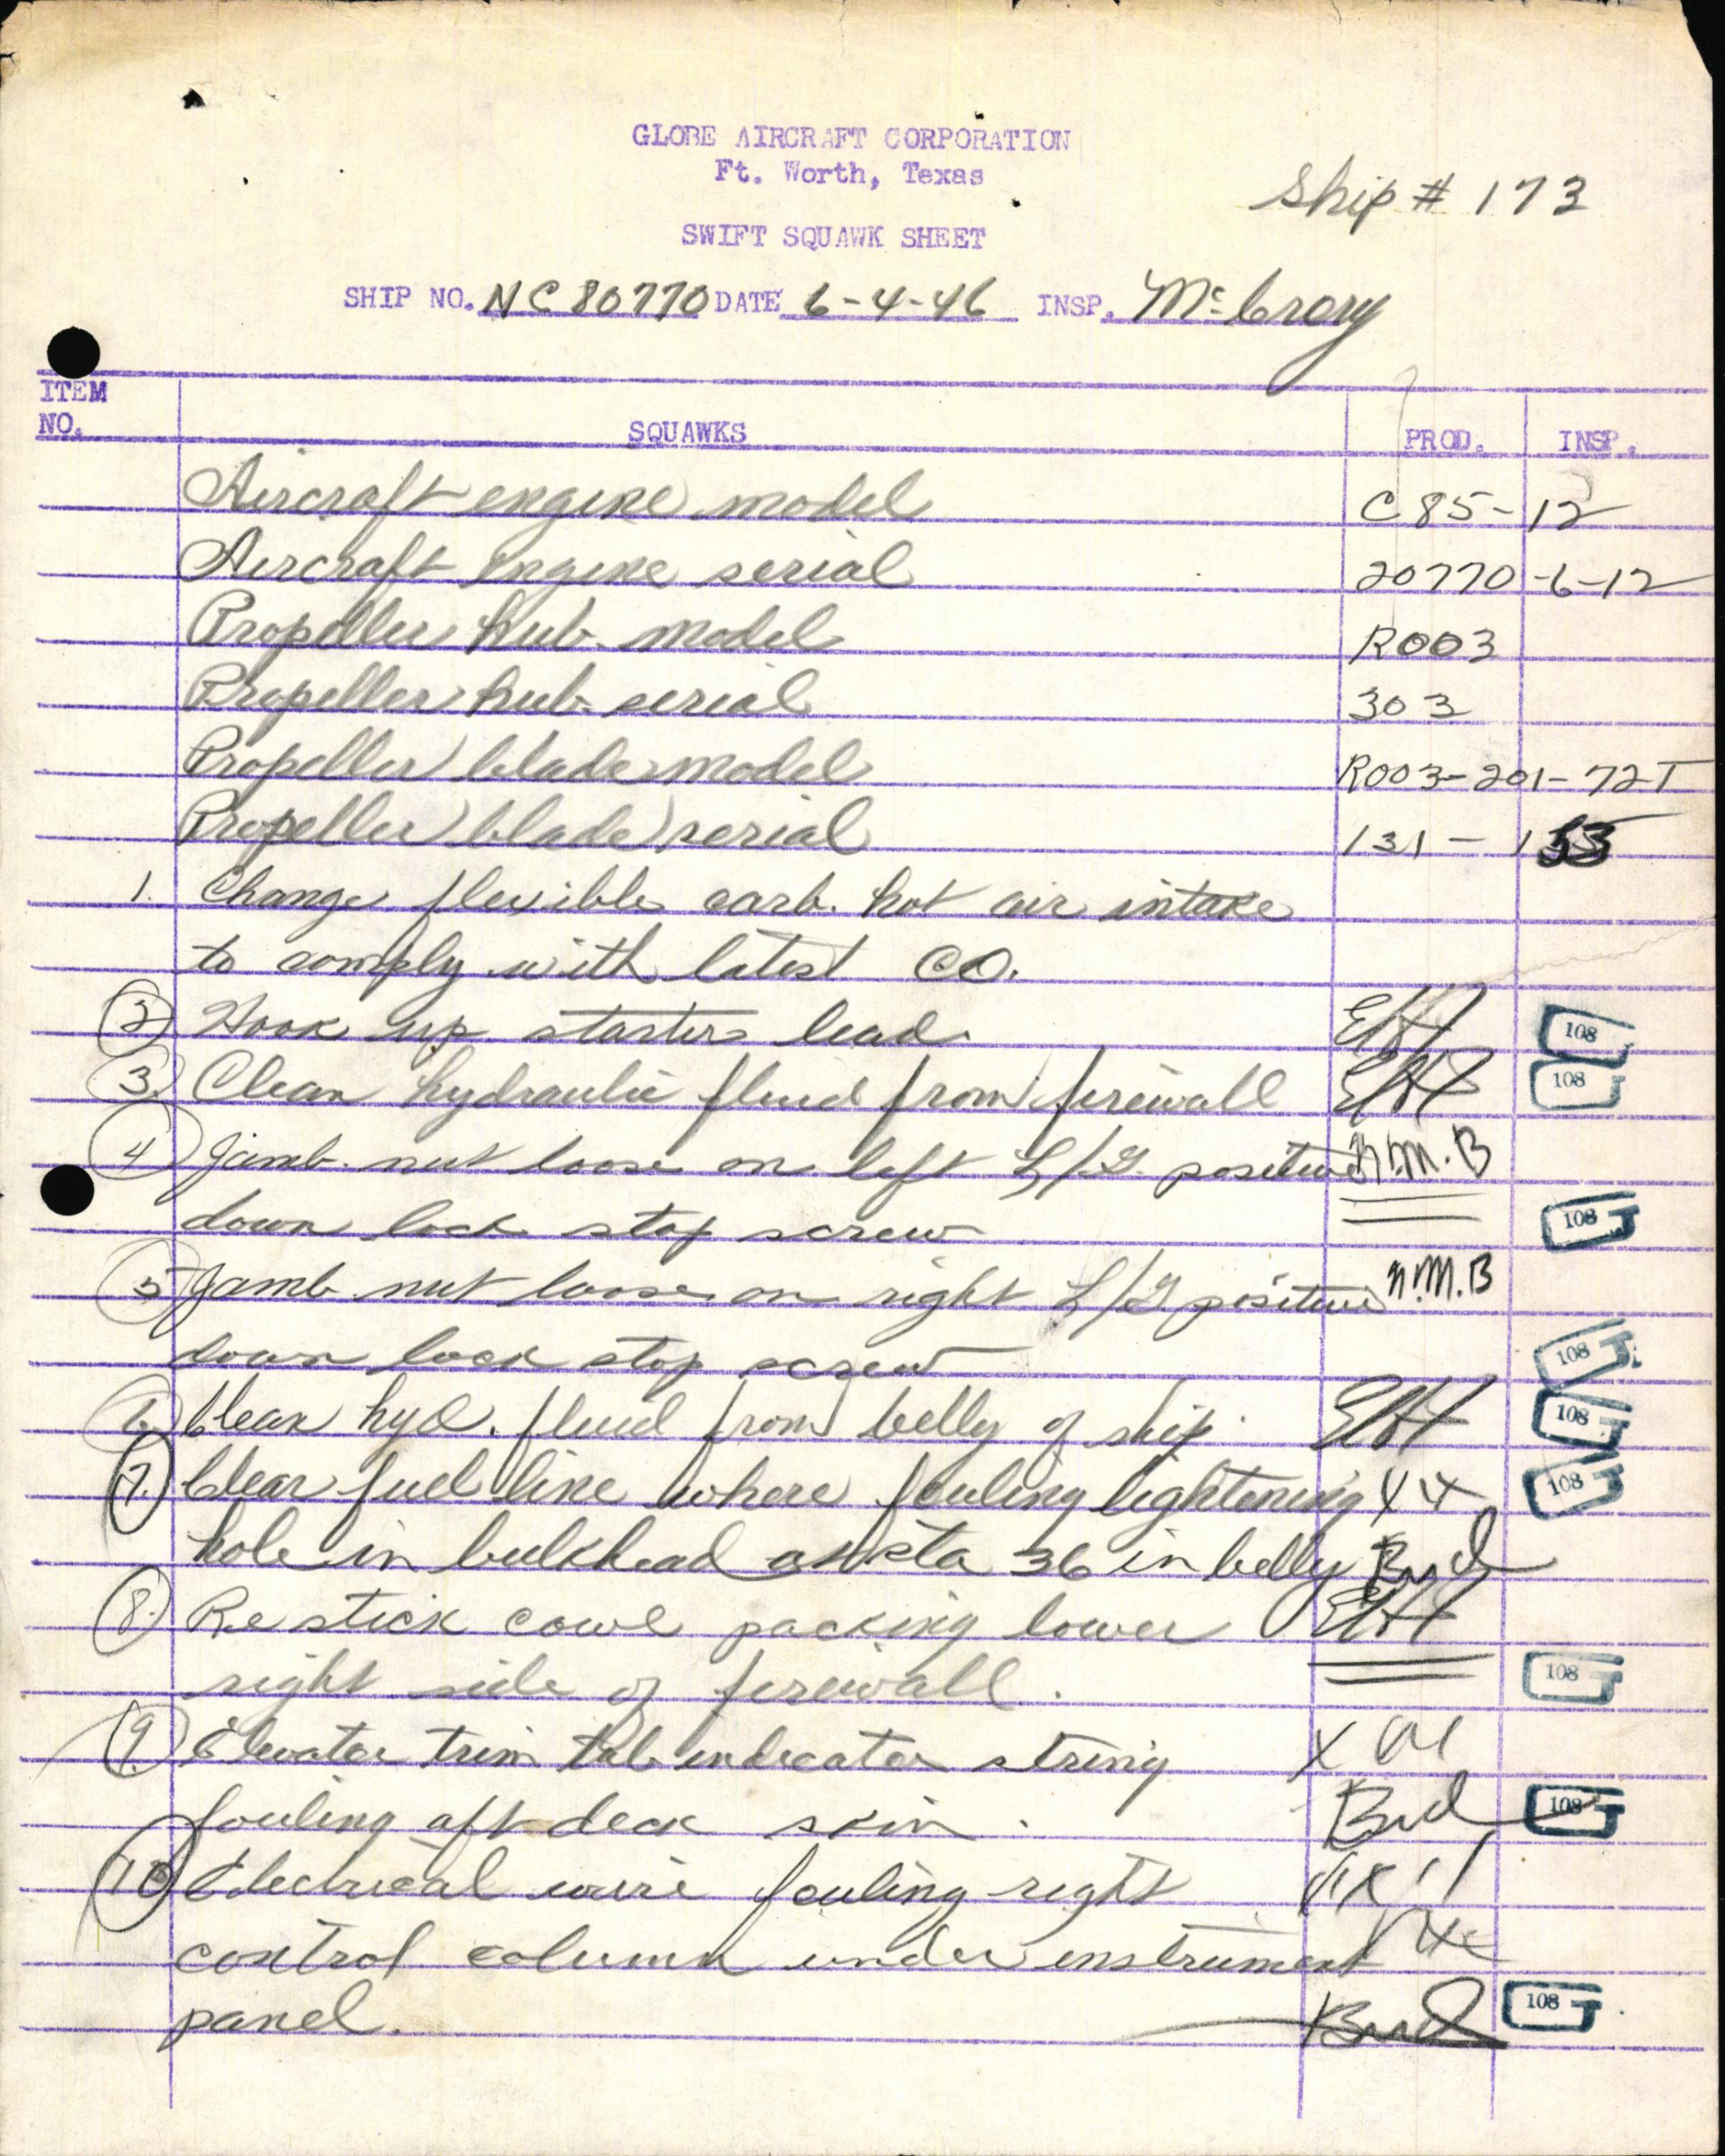 GLOBE AIRCRAFT CORPORATION
Ft. Worth, Texas
Ship # 173
SWIFT SQUAWK SHEET
SHIP NO. NC80770 DATE 6-4-46 INSP. McCrary
ITEM NO. SQUAWKS PROD. INSP.
Aircraft engine model C85-12
Aircraft engine serial 20770-6-12
Propeller hub model R003
Propeller hub serial 303
Propeller blade model R003-201-72T
Propeller blade serial 131-155
1. Change flexible carb. hot air intake
to comply with latest CO.
2. Hook up starter lead. 108
3. Clean hydraulic fluid from firewall 108
4. Jamb nut loose on left L/G positive N.M.B
down lock stop screw 108
5. Jamb nut loose on right L/G positive N.M.B
down lock stop screw 108
6. Clean hyd. fluid from belly of ship. 108
7. Clear fuel line where fouling lightening 108
hole in bulkhead at sta 36 in belly Bud
8. Re stick cowl packing lower
right side of firewall. 108
9. Elevator trim tab indicator string
fouling aft deck skin. Bud 108
10 Electrical wire fouling right
control column under instrument
panel. Bud 108